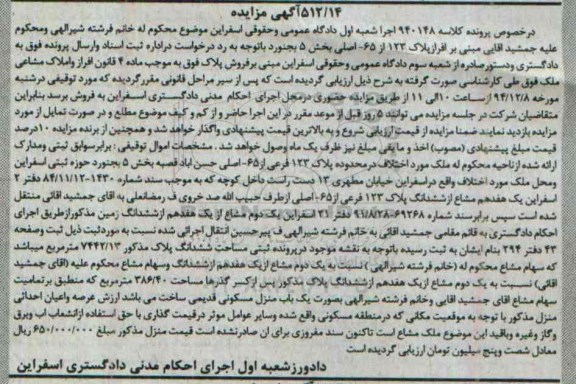 ۵۱۲/۱۴آگهی مزایده
درخصوص پرونده کلاسه ۹۴۰۱۴۸ اجرا شعبه اول دادگاه عمومی وحقوقی اسفراین موضوع محکوم له خانم فرشته شیرالهی ومحکوم
علیه جمشید اقایی مبنی بر افرازپلاک ۱۲۳ از ۶۵- اصلی بخش ۵ بجنورد باتوجه به رد درخواست دراداره ثبت اسناد وارسال پرونده فوق به
دادگستری ودستورصادره از شعبه سوم دادگاه عمومی وحقوقی اسفراین مبنی برفروش پلاک فوق به موجب ماده ۴ قانون افراز واملاک مشاعی
ملک فوق طی کارشناسی صورت گرفته به شرح ذیل ارزیابی گردیده است که پس از سیر مراحل قانونی مقررگردیده که مورد توقیفی درشنبه
مورخه ۹۴/۱۲/۸ ازساعت ۱۰الی ۱۱ از طریق مزایده حضوری درمحل اجرای احکام مدنی دادگستری اسفراین به فروش برسد بنابراین
متقاضیان شرکت در جلسه مزایده می توانند ۵ روز قبل از موعد مقرر در این اجرا حاضر و از کم و کیف موضوع مطلع و در صورت تمایل از مورد
مزایده بازدید نمایند ضمنا مزایده از قیمت ارزیابی شروع و به بالاترین قیمت پیشنهادی واگذار خواهد شد و همچنین از برنده مزایده ۱۰درصد
قیمت مبلغ پیشنهادی (مصوب) اخذ و مابقی مبلغ نیز ظرف یک ماه وصول خواهد شد . مشخصات اموال توقیفی : برابرسوابق ثبتی ومدارک
ارائه شده ازناحیه محکوم له ملک مورد اختلاف درمحدوده پلاک ۱۲۳ فرعی از۶۵-اصلی حسن اباد قصبه بخش ۵ بجنورد حوزه ثبتی اسفراین
ومحل ملک مورد اختلاف واقع دراسفراین خیابان مطهری ۱۳ دست راست داخل کوچه که به موجب سند شماره ۱۴۳۰-۸۴/۱۱/۱۲ دفتر ۲
اسفراین یک هفدهم مشاع ازششدانگ پلاک ۱۲۳ فرعی از۶۵-اصلی ازطرف حبیب الله صد خروی ف رمضانعلی به اقای جمشید اقائی منتقل
شده است سپس برابرسند شماره ۶۹۲۶۸-۹۱/۸/۲۸ دفتر ۳۱ اسفراین یک دوم مشاع از یک هفدهم ازششدانگ زمین مذکورازطریق اجرای
احکام دادگستری به قائم مقامی جمشید اقائی به خانم فرشته شیرالهی ف پیرحسین انتقال اجرائی شده بنا به صورت ثبت ذیل ثبت وصفحه
۴۳ دفتر ۲۹۴ بنام ایشان به ثبت رسیده باتوجه به نقشه موجود درپرونده ثبتی .مساحت ششدانگ پلاک مذکور ۷۴۴۲/۱۳ مترمربع میباشد
که سهام مشاع محکوم له (خانم فرشته شیرالهی ) نسبت به یک دوم مشاع ازیک هفدهم ازششدانگ وسهام مشاع محکوم علیه (اقای جمشید
اقائی) نسبت به یک دوم مشاع ازیک هفدهم ازششدانگ پلاک مذکورپس ازکسر گذرها مساحت ۳۸۶/۴۰ مترمربع که منطبق برتمامیت
سهام مشاع اقای جمشید اقایی وخانم فرشته الهی بصورت یک باب منزل مسکونی قدیمی ساخت می باشد ارزش عرصه واعیان احداثی
منزل مذکور با توجه به موقعیت مکانی که درمنطقه مسکونی واقع شده وسایر عوامل موثر درقیمت گذاری با حق استفاده ازانشعاب اب وبرق
وگاز وغیره وباقید این موضوع ملک مشاع است تاکنون سند مفروزی برای ان صادرنشده است قیمت منزل مذکور مبلغ ۶۵۰/۰۰۰/۰۰۰ ریال
معادل شصت وپنج میلیون تومان ارزیابی گردیده است
دادورزشعبه اول اجرای احکام مدنی دادگستری اسفراین